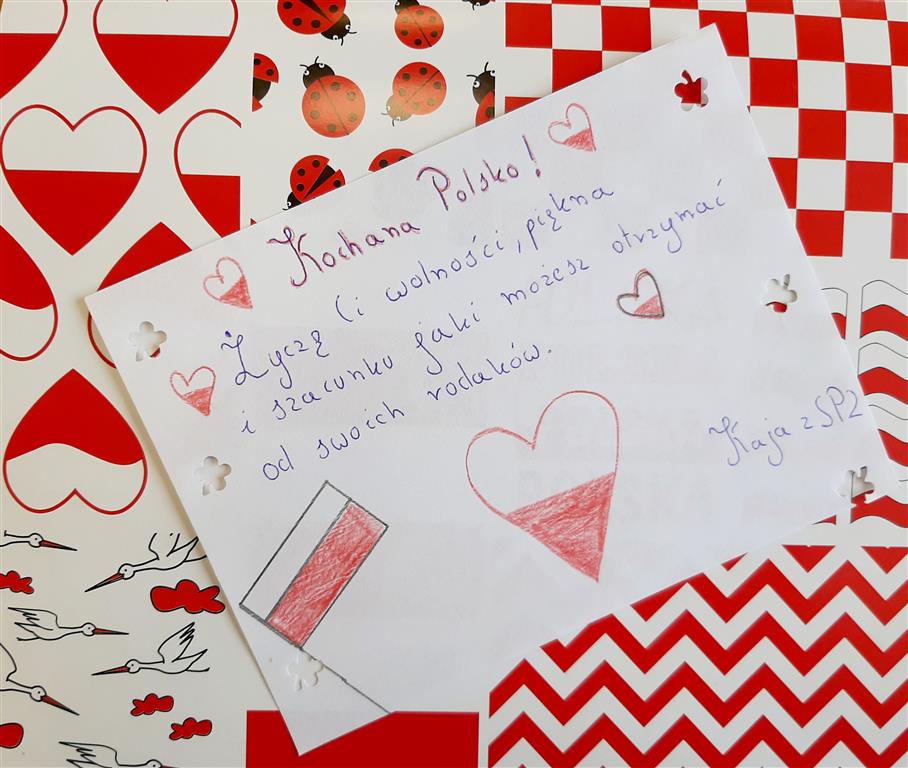 Kochana Polsko!
Życzę Ci wolności, piękna
i szacunku jaki możesz otrzymać
od swoich rodaków.
Kaja z SP2